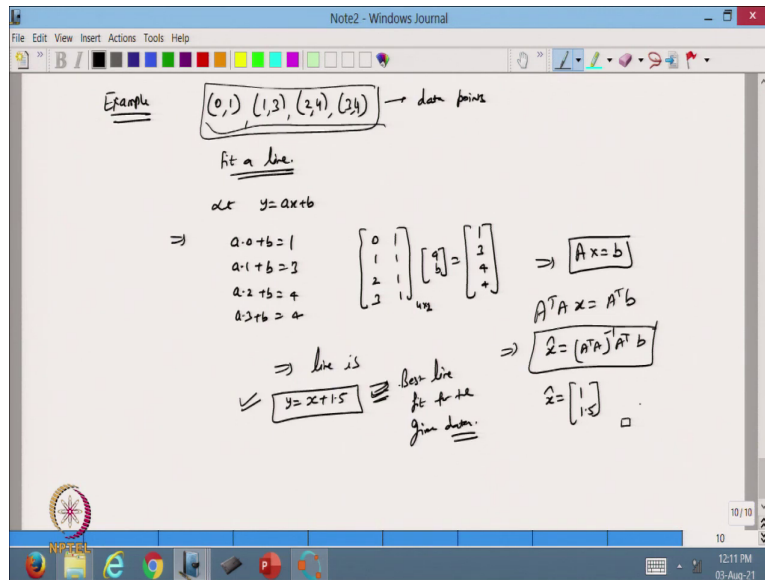 Note2 - Windows Journal
File Edit View Insert Actions Tools Help
B I
Example (0,1) (1,3), (2,4), (3,4) → data points
fit a line.
let y=ax+b
⇒ a·0+b=1
a·1+b=3
a·2+b=4
a·3+b=4
[0 1; 1 1; 2 1; 3 1]4x2 [a; b] = [1; 3; 4; 4] ⇒ Ax=b
AᵀA x = Aᵀb
⇒ x̂ = (AᵀA)⁻¹Aᵀ b
x̂ = [1; 1.5]
⇒ line is
y=x+1.5 Best line
fit for the
given data.
10/10
10
NPTEL
12:11 PM
03-Aug-21